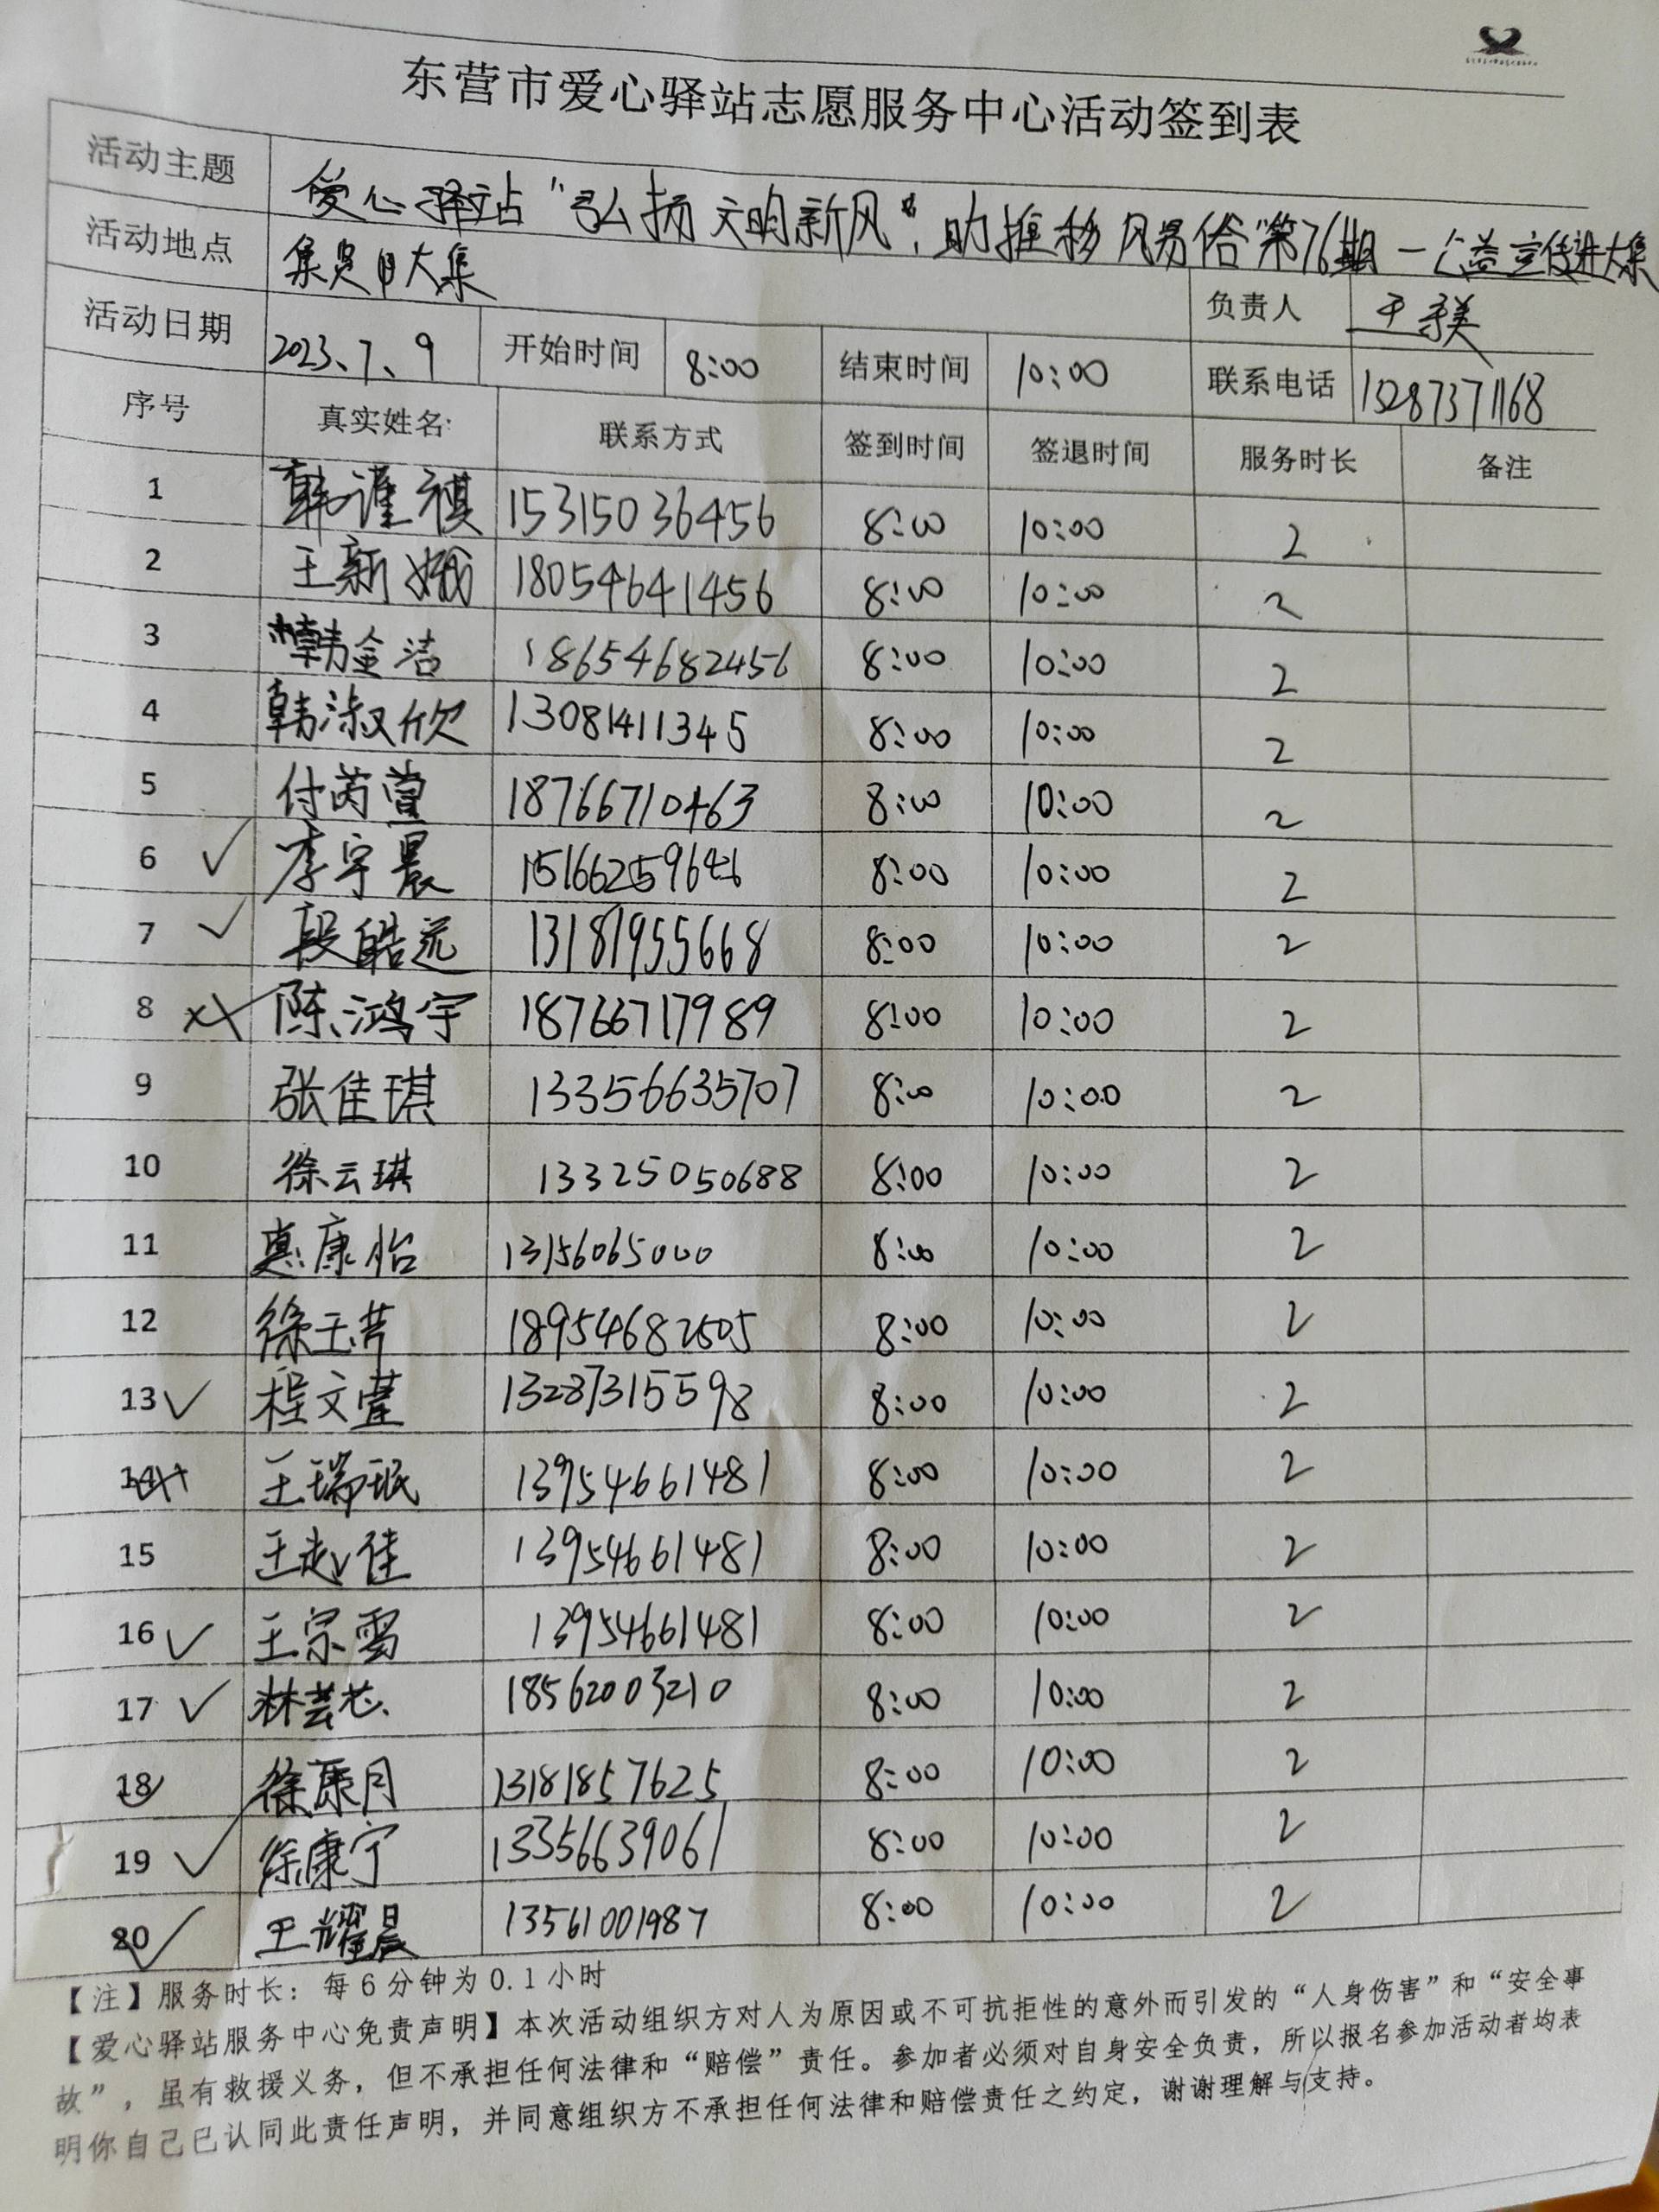 东营市爱心驿站志愿服务中心活动签到表
活动主题 爱心驿站“弘扬文明新风”，助推移风易俗“第76期一公益宣传进大集
活动地点 集贤大集 负责人
活动日期 2023、7、9 开始时间 8:00 结束时间 10:00 联系电话 13287371168
序号 真实姓名: 联系方式 签到时间 签退时间 服务时长 备注
1 韩谨祺 15315036456 8:00 10:00 2
2 王新娥 18054641456 8:00 10:00 2
3 韩金洁 18654682456 8:00 10:00 2
4 韩淑欣 13081411345 8:00 10:00 2
5 付芮萱 18766710463 8:00 10:00 2
6 ✓ 李宇晨 8:00 10:00 2
7 ✓ 段皓远 13181955668 8:00 10:00 2
8 陈鸿宇 18766717989 8:00 10:00 2
9 张佳琪 13356635707 8:00 10:00 2
10 徐云琪 13325050688 8:00 10:00 2
11 惠康怡 13156065000 8:00 10:00 2
12 徐玉芹 18954682505 8:00 10:00 2
13 ✓ 程文萱 13287315598 8:00 10:00 2
14 王瑞珉 13954661481 8:00 10:00 2
15 13954661481 8:00 10:00 2
16 ✓ 王宗雪 13954661481 8:00 10:00 2
17 ✓ 林芸芯 18562003210 8:00 10:00 2
18 徐康月 13181857625 8:00 10:00 2
19 ✓ 徐康宁 13356639061 8:00 10:00 2
20 ✓ 王耀晨 13561001987 8:00 10:00 2
【注】服务时长：每6分钟为0.1小时
【爱心驿站服务中心免责声明】本次活动组织方对人为原因或不可抗拒性的意外而引发的“人身伤害”和“安全事
故”，虽有救援义务，但不承担任何法律和“赔偿”责任。参加者必须对自身安全负责，所以报名参加活动者均表
明你自己已认同此责任声明，并同意组织方不承担任何法律和赔偿责任之约定，谢谢理解与支持。